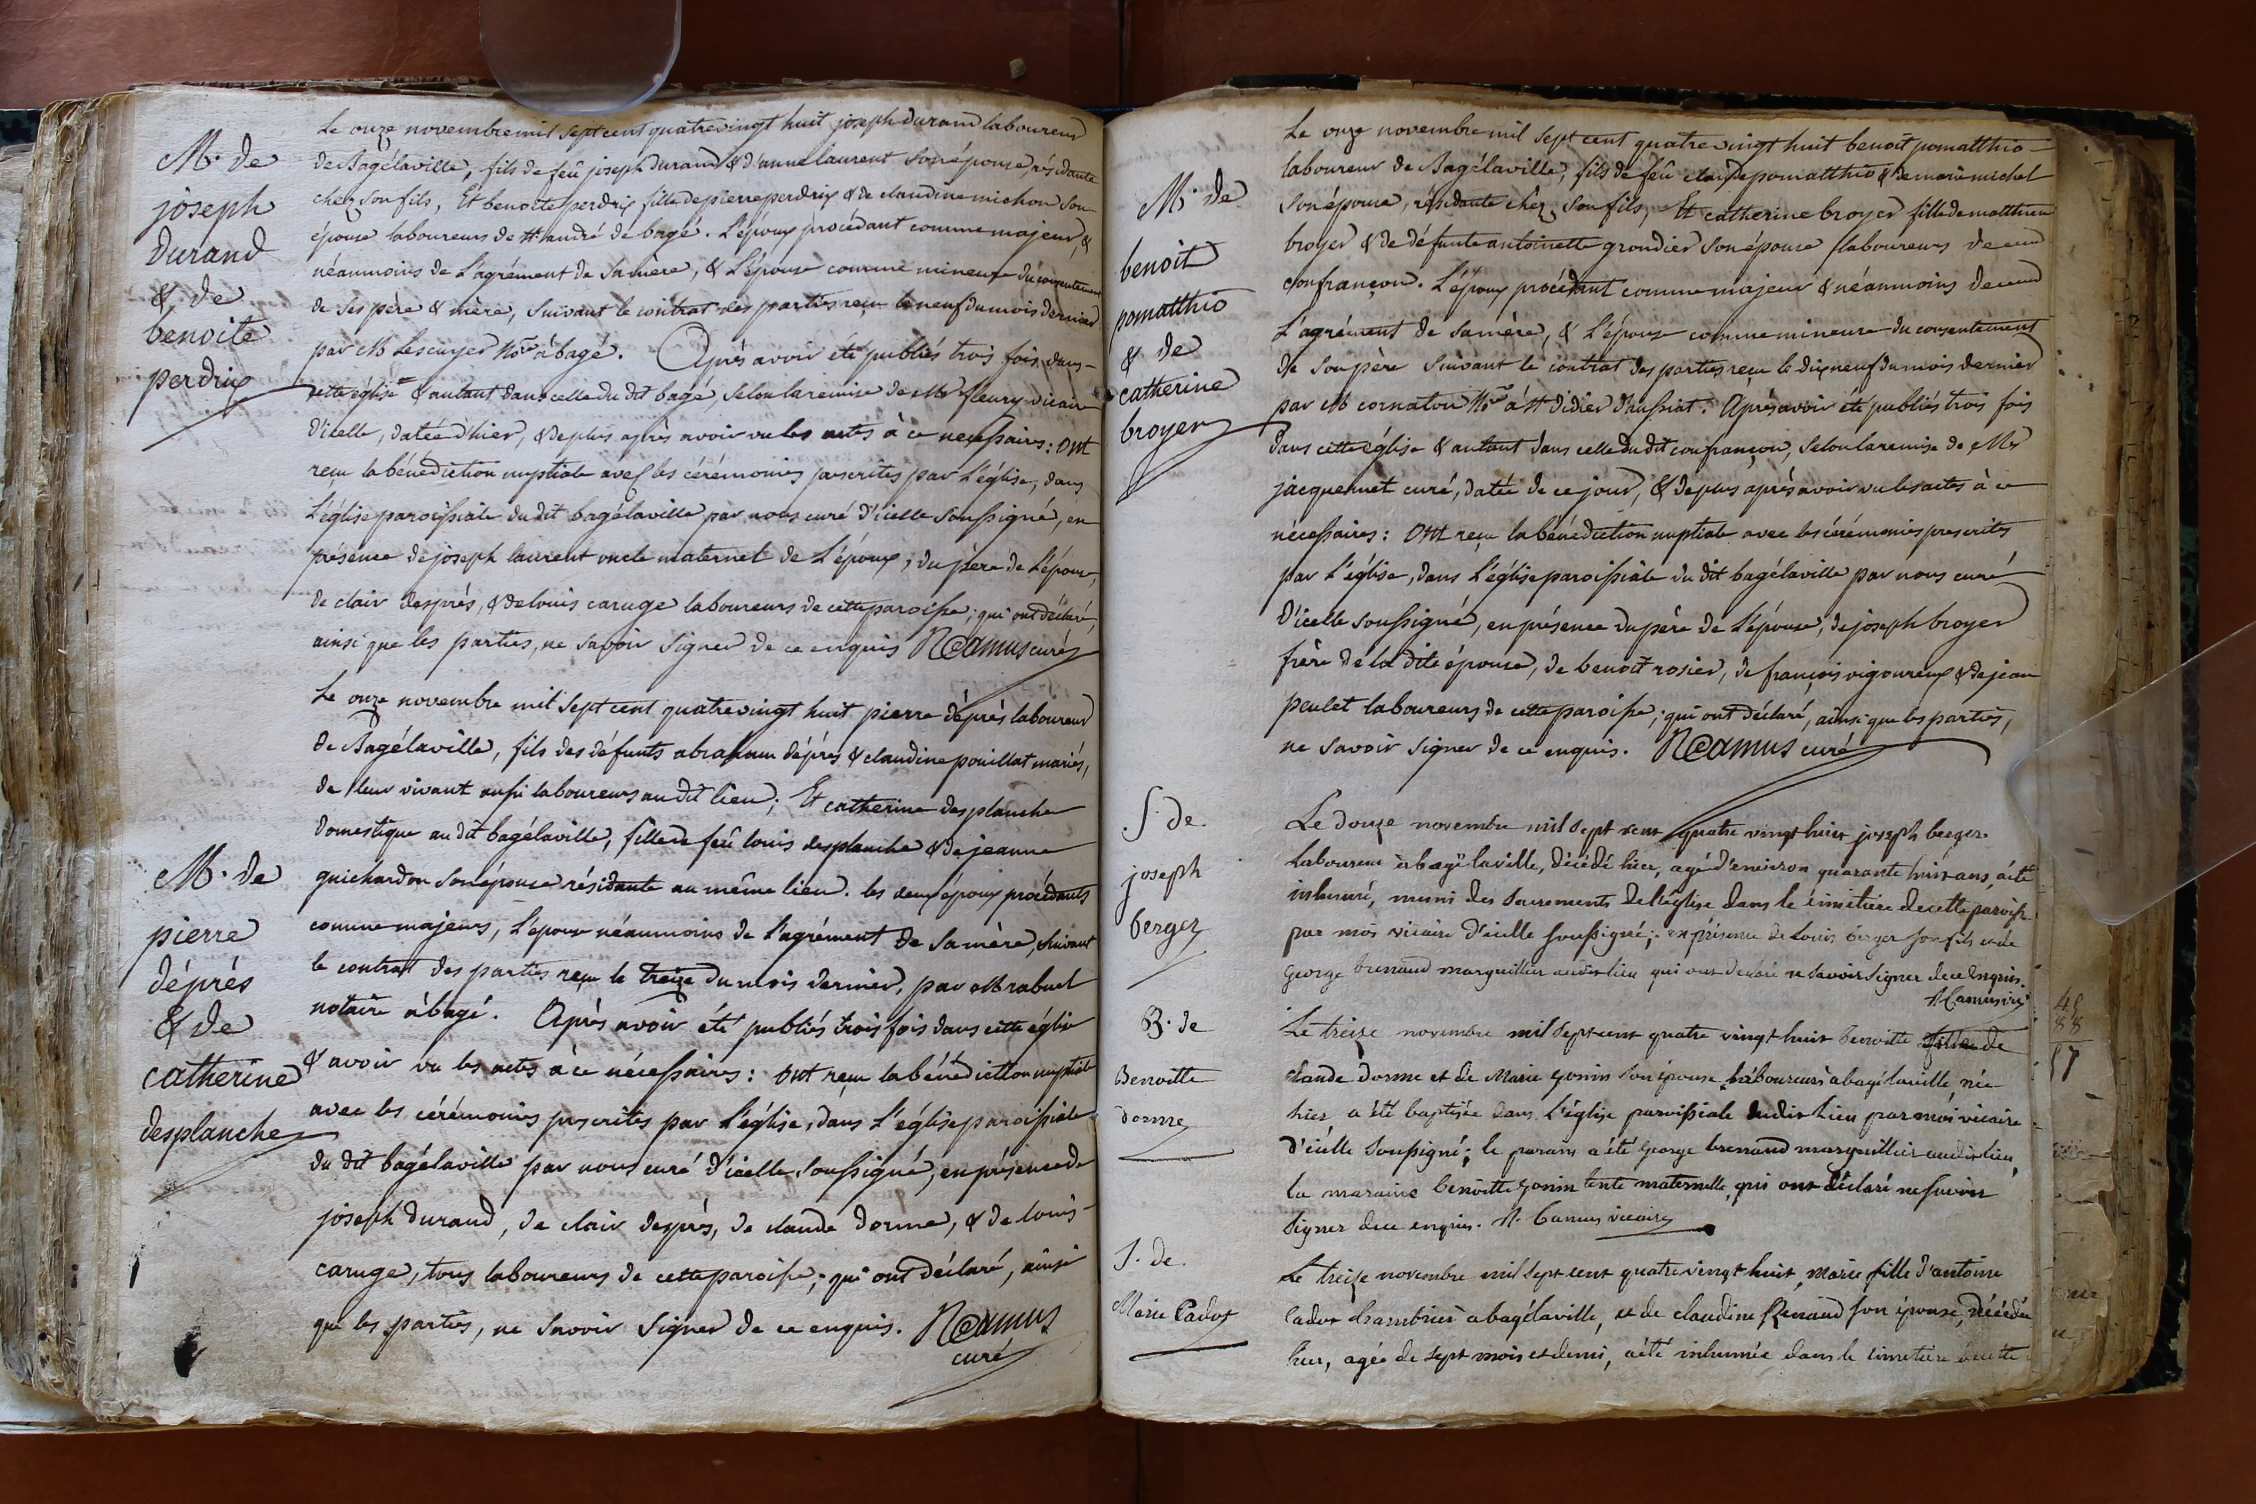 M. de
joseph
durand
& de
benoite
perdrix
Le onze novembre mil sept cent quatre vingt huit joseph durand laboureur
de Bagélaville, fils de feû joseph durand & d'anne laurent son épouse résidante
chez son fils, Et benoite perdrix fille de pierre perdrix & de claudine michon son
épouse laboureurs de St. andré de bagé. L'époux procédant comme majeur, &
néanmoins de l'agrément de sa mère, & L'épouse comme mineure du consentement
de ses père & mère, suivant le contrat des parties reçu le neuf du mois dernier
par M Lescuyer Nore à bagé. Après avoir été publiés trois fois dans
cette église & autant dans celle du dit bagé, selon la remise de Mr fleury vicaire
d'icelle, datée d'hier, & de plus après avoir vu les actes à ce necessaires: Ont
reçu la bénédiction nuptiale avec les cérémonies prescrites par L'église, dans
L'église paroissiale du dit bagélaville par nous curé d'icelle soussigné, en
présence de joseph laurent oncle maternel de L'époux, du père de L'épouse,
de clair desprès, & de louis caruge laboureurs de cette paroisse; qui ont déclaré,
ainsi que les parties, ne savoir signer de ce enquis NCamus curé
M. de
pierre
déprés
& de
catherine
desplanche
Le onze novembre mil sept cent quatre vingt huit pierre déprés laboureur
de Bagélaville, fils des défunts abraham déprés & claudine pouillat mariés,
de leur vivant aussi laboureurs au dit lieu; Et catherine desplanche
domestique au dit bagélaville, fille de feû louis desplanche & de jeanne
guichardon son épouse résidante au même lieu. les deux époux procédants
comme majeurs, L'épouse néanmoins de l'agrément de sa mère, suivant
le contrat des parties reçu le treize du mois dernier, par M rabuel
notaire à bagé. Après avoir été publiés trois fois dans cette église
& avoir vu les actes à ce nécessaires: ont reçu la bénédiction nuptiale
avec les cérémonies prescrites par L'église, dans L'église paroissiale
du dit bagélaville par nous curé d'icelle soussigné, en présence de
joseph durand, de clair desprès, de claude dorme, & de louis
caruge, tous laboureurs de cette paroisse; qui ont déclaré, ainsi
que les parties, ne savoir signer de ce enquis. NCamus
curé
M. de
benoit
pomatthio
& de
catherine
broyer
Le onze novembre mil sept cent quatre vingt huit benoit pomatthio
laboureur de Bagélaville, fils de feû claude pomatthio & de marie michel
son épouse, résidante chez son fils, Et catherine broyer fille de matthieu
broyer & de défunte antoinette grondier son épouse laboureurs de
confrançon. L'époux procédant comme majeur & néanmoins de
L'agrément de sa mère, & L'épouse comme mineure du consentement
de son père suivant le contrat des parties reçu le dix neuf du mois dernier
par M cornaton Nore à St Didier d'aussiat. Après avoir été publiés trois fois
dans cette église & autant dans celle du dit confrançon, selon la remise de Mr
jacquemet curé, datée de ce jour, & de plus après avoir vu les actes à ce
nécessaires: Ont reçu la bénédiction nuptiale avec les cérémonies prescrites
par L'église, dans L'église paroissiale du dit bagélaville par nous curé
d'icelle soussigné, en présence du père de L'épouse, de joseph broyer
frère de la dite épouse, de benoit rosier, de françois vigoureux & de jean
peulet laboureurs de cette paroisse; qui ont déclaré, ainsi que les parties,
ne savoir signer de ce enquis. NCamus curé
S. de
joseph
berger
Le douze novembre mil sept cent quatre vingt huit joseph berger
laboureur à bagélaville, décédé hier, agé d'environ quarante huit ans, a été
inhumé, muni des sacrements de l'église dans le cimetière de cette paroisse
par moi vicaire d'icelle soussigné; en présence de Louis berger son fils et de
George brenaud marguillier audit lieu qui ont declaré ne savoir signer de ce enquis.
N. Camus vicre
B. de
Benoitte
dorme
Le treize novembre mil sept cent quatre vingt huit Benoitte fille de
claude dorme et de Marie gonin son épouse laboureurs à bagélaville née
hier a été baptisée dans l'église paroissiale dudit lieu par moi vicaire
d'icelle soussigné; le parain a été George brenaud marguillier audit lieu,
la maraine benoitte gonin tente maternelle, qui ont déclaré ne savoir
signer de ce enquis. N. Camus vicaire
S. de
Marie Cadot
Le treize novembre mil sept cent quatre vingt huit, Marie fille d'antoine
Cador chambrier à bagélaville, et de claudine Renaud son épouse, décédée
hier, agée de sept mois et demi, a été inhumée dans le cimetière de cette
48
88